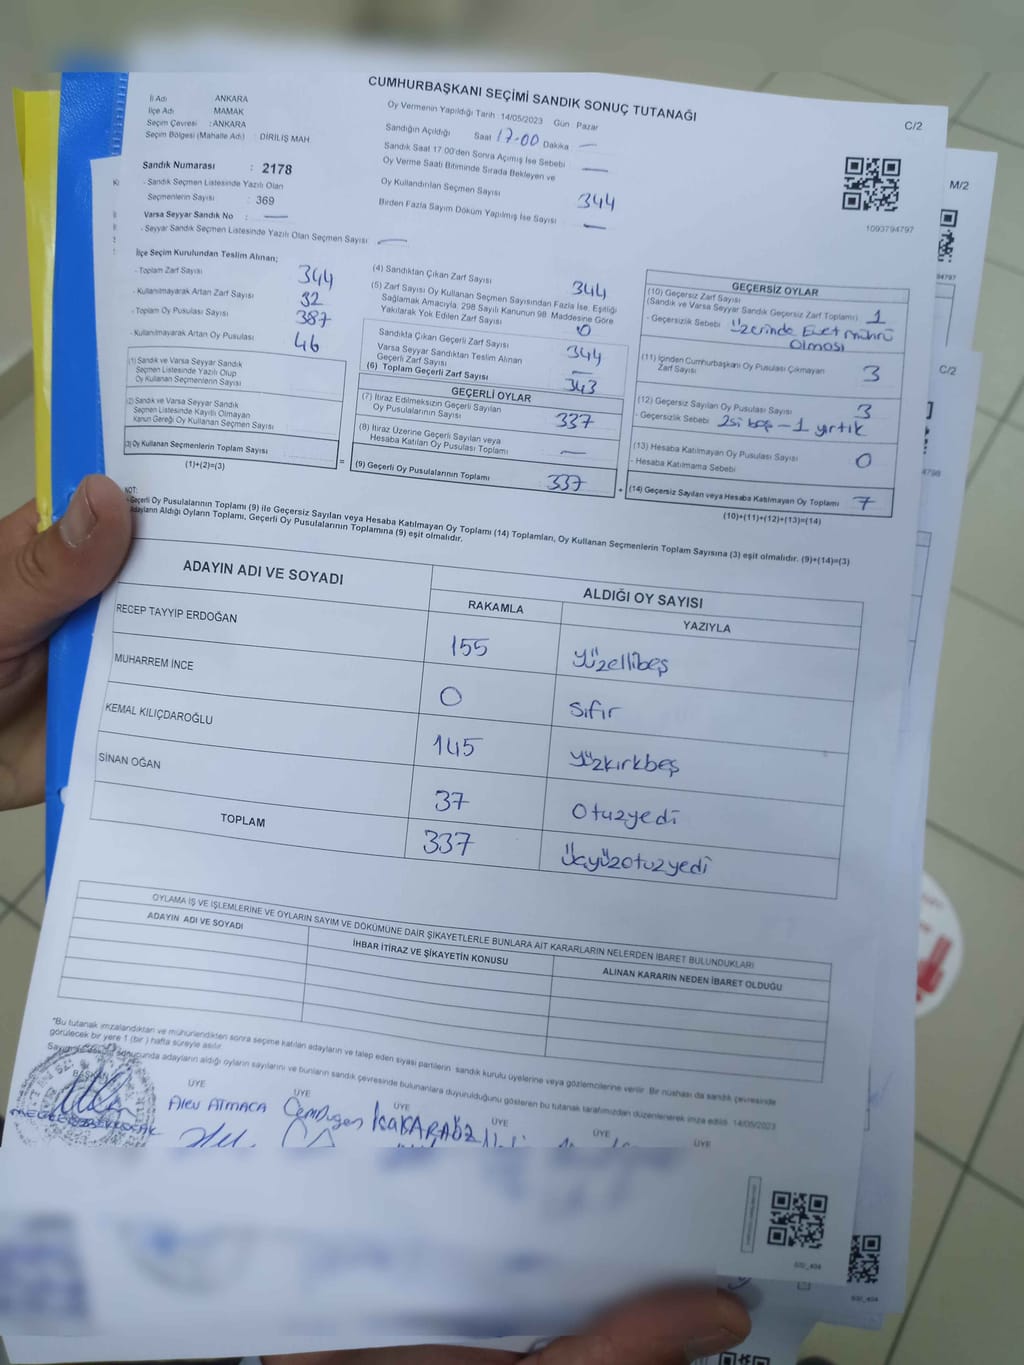 CUMHURBAŞKANI SEÇİMİ SANDIK SONUÇ TUTANAĞI
C/2
İl Adı ANKARA
İlçe Adı MAMAK
Seçim Çevresi : ANKARA
Seçim Bölgesi (Mahalle Adı) : DİRİLİŞ MAH
Sandık Numarası : 2178
- Sandık Seçmen Listesinde Yazılı Olan
Seçmenlerin Sayısı : 369
Varsa Seyyar Sandık No : —
- Seyyar Sandık Seçmen Listesinde Yazılı Olan Seçmen Sayısı —
Oy Vermenin Yapıldığı Tarih 14/05/2023 Gün Pazar
Sandığın Açıldığı Saat 17.00 Dakika —
Sandık Saat 17.00'den Sonra Açılmış İse Sebebi —
Oy Verme Saati Bitiminde Sırada Bekleyen ve
Oy Kullandırılan Seçmen Sayısı 344
Birden Fazla Sayım Döküm Yapılmış İse Sayısı —
1093794797
İlçe Seçim Kurulundan Teslim Alınan;
- Toplam Zarf Sayısı 344
- Kullanılmayarak Artan Zarf Sayısı 32
- Toplam Oy Pusulası Sayısı 387
- Kullanılmayarak Artan Oy Pusulası 46
(1) Sandık ve Varsa Seyyar Sandık
Seçmen Listesinde Yazılı Olup
Oy Kullanan Seçmenlerin Sayısı
(2) Sandık ve Varsa Seyyar Sandık
Seçmen Listesinde Kayıtlı Olmayan
Kanun Gereği Oy Kullanan Seçmen Sayısı
(3) Oy Kullanan Seçmenlerin Toplam Sayısı
(1)+(2)=(3)
(4) Sandıktan Çıkan Zarf Sayısı 344
(5) Zarf Sayısı Oy Kullanan Seçmen Sayısından Fazla İse, Eşitliği
Sağlamak Amacıyla, 298 Sayılı Kanunun 98. Maddesine Göre
Yakılarak Yok Edilen Zarf Sayısı 0
Sandıkta Çıkan Geçerli Zarf Sayısı 344
Varsa Seyyar Sandıktan Teslim Alınan
Geçerli Zarf Sayısı —
(6) Toplam Geçerli Zarf Sayısı 343
GEÇERLİ OYLAR
(7) İtiraz Edilmeksizin Geçerli Sayılan
Oy Pusulalarının Sayısı 337
(8) İtiraz Üzerine Geçerli Sayılan veya
Hesaba Katılan Oy Pusulası Toplamı —
= (9) Geçerli Oy Pusulalarının Toplamı 337
GEÇERSİZ OYLAR
(10) Geçersiz Zarf Sayısı
(Sandık ve Varsa Seyyar Sandık Geçersiz Zarf Toplamı) 1
- Geçersizlik Sebebi Üzerinde Evet mührü
Olması
(11) İçinden Cumhurbaşkanı Oy Pusulası Çıkmayan
Zarf Sayısı 3
(12) Geçersiz Sayılan Oy Pusulası Sayısı 3
- Geçersizlik Sebebi 2si boş - 1 yırtık
(13) Hesaba Katılmayan Oy Pusulası Sayısı 0
- Hesaba Katılmama Sebebi
+ (14) Geçersiz Sayılan veya Hesaba Katılmayan Oy Toplamı 7
(10)+(11)+(12)+(13)=(14)
NOT:
- Geçerli Oy Pusulalarının Toplamı (9) ile Geçersiz Sayılan veya Hesaba Katılmayan Oy Toplamı (14) Toplamları, Oy Kullanan Seçmenlerin Toplam Sayısına (3) eşit olmalıdır. (9)+(14)=(3)
Adayların Aldığı Oyların Toplamı, Geçerli Oy Pusulalarının Toplamına (9) eşit olmalıdır.
ADAYIN ADI VE SOYADI
ALDIĞI OY SAYISI
RAKAMLA YAZIYLA
RECEP TAYYİP ERDOĞAN 155 yüzellibeş
MUHARREM İNCE 0 sıfır
KEMAL KILIÇDAROĞLU 145 yüzkırkbeş
SİNAN OĞAN 37 Otuzyedi
TOPLAM 337 Üçyüzotuzyedi
OYLAMA İŞ VE İŞLEMLERİNE VE OYLARIN SAYIM VE DÖKÜMÜNE DAİR ŞİKAYETLERLE BUNLARA AİT KARARLARIN NELERDEN İBARET BULUNDUKLARI
ADAYIN ADI VE SOYADI
İHBAR İTİRAZ VE ŞİKAYETİN KONUSU
ALINAN KARARIN NEDEN İBARET OLDUĞU
*Bu tutanak imzalandıktan ve mühürlendikten sonra seçime katılan adayların ve talep eden siyasi partilerin sandık kurulu üyelerine veya gözlemcilerine verilir. Bir nüshası da sandık çevresinde
görülecek bir yere 1 (bir) hafta süreyle asılır.
sonucunda adayların aldığı oyların sayılarını ve bunların sandık çevresinde bulunanlara duyurulduğunu gösteren bu tutanak tarafımızdan düzenlenerek imza edildi. 14/05/2023
ÜYE ÜYE ÜYE ÜYE ÜYE ÜYE
Alev ATMACA
M/2
C/2